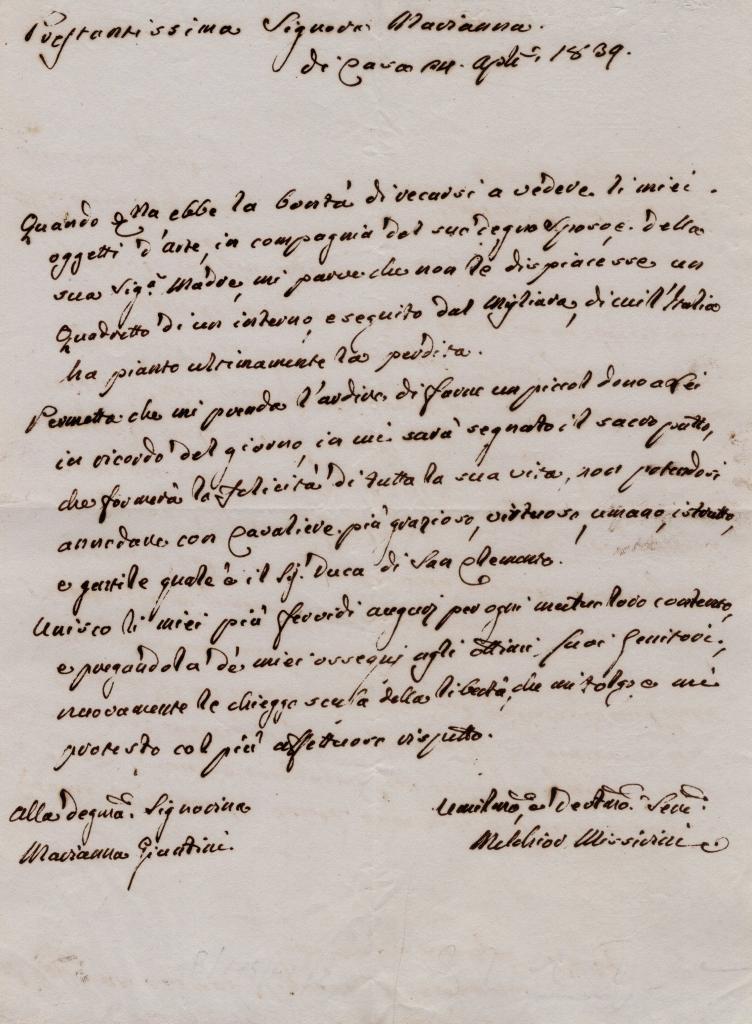 Prestantissima Signora Marianna.
di Casa 24. Aple. 1839.
Quando Ella ebbe la bontà di recarsi a vedere li miei
oggetti d'arte, in compagnia del suo degno Sposo, e della
sua Siga. Madre, mi parve che non le dispiacesse un
Quadretto di un interno, eseguito dal Migliara, di cui l'Italia
ha pianto ultimamente la perdita.
Permetta che mi prenda l'ardire di farne un piccol dono a Lei
in ricordo del giorno, in cui sarà segnato il sacro patto,
che formerà la felicità di tutta la sua vita, non potendosi
annodare con Cavaliere più grazioso, virtuoso, umano, istrutto,
e gentile quale è il Sigr. Duca di San Clemente.
Unisco li miei più fervidi augurj per ogni maturo loro contento,
e pregandola de' miei ossequj agli ottimi suoi Genitori,
nuovamente le chieggo scusa della libertà, che mi tolgo, e mi
protesto col più affettuoso rispetto.
Alla degma. Signorina
Marianna Giuntini
Umilmo. e Devotmo. Serv.
Melchior Missirini